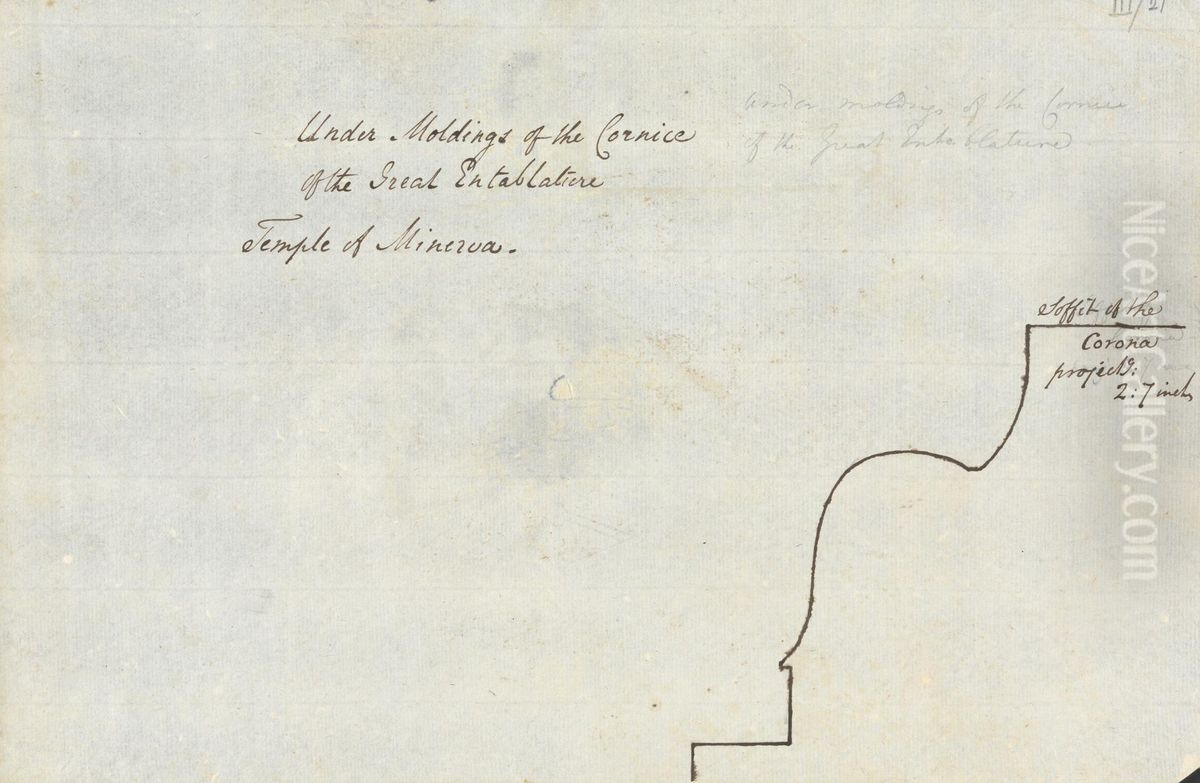 III/21
Under Moldings of the Cornice
of the Great Entablature
Temple of Minerva.
Under moldings of the Cornice
of the Great Entablature
Soffit of the
Corona
projectg:
2:7 inchs
NiceArtGallery.com